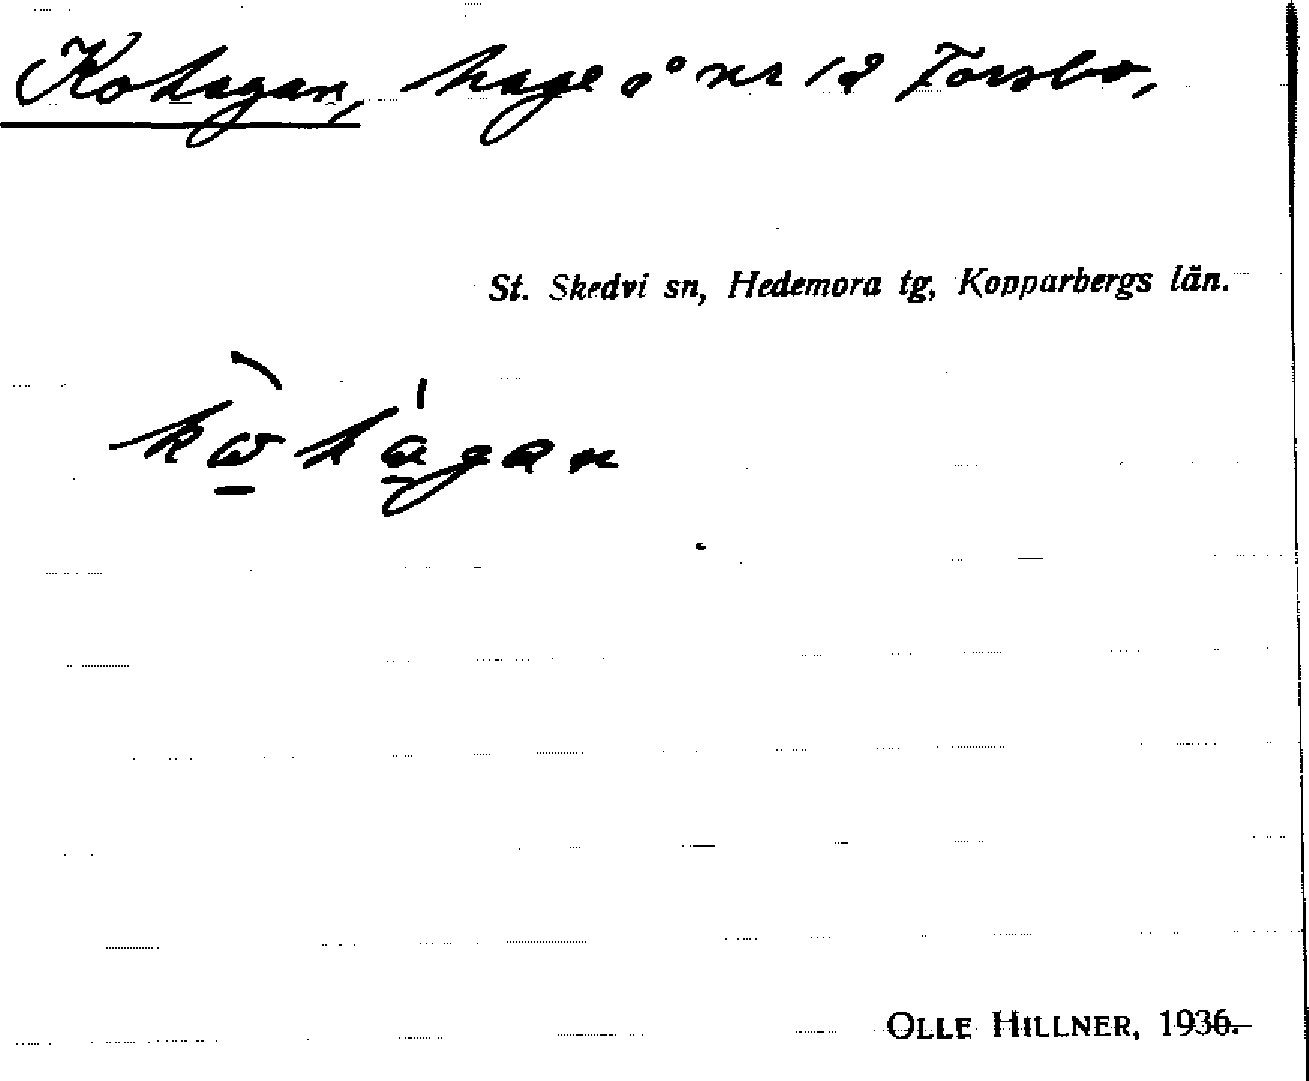 Kohagan, hage å nr 12 Forsbo,
St. Skedvi sn, Hedemora tg, Kopparbergs län.
kωhagan
OLLE HILLNER, 1936.